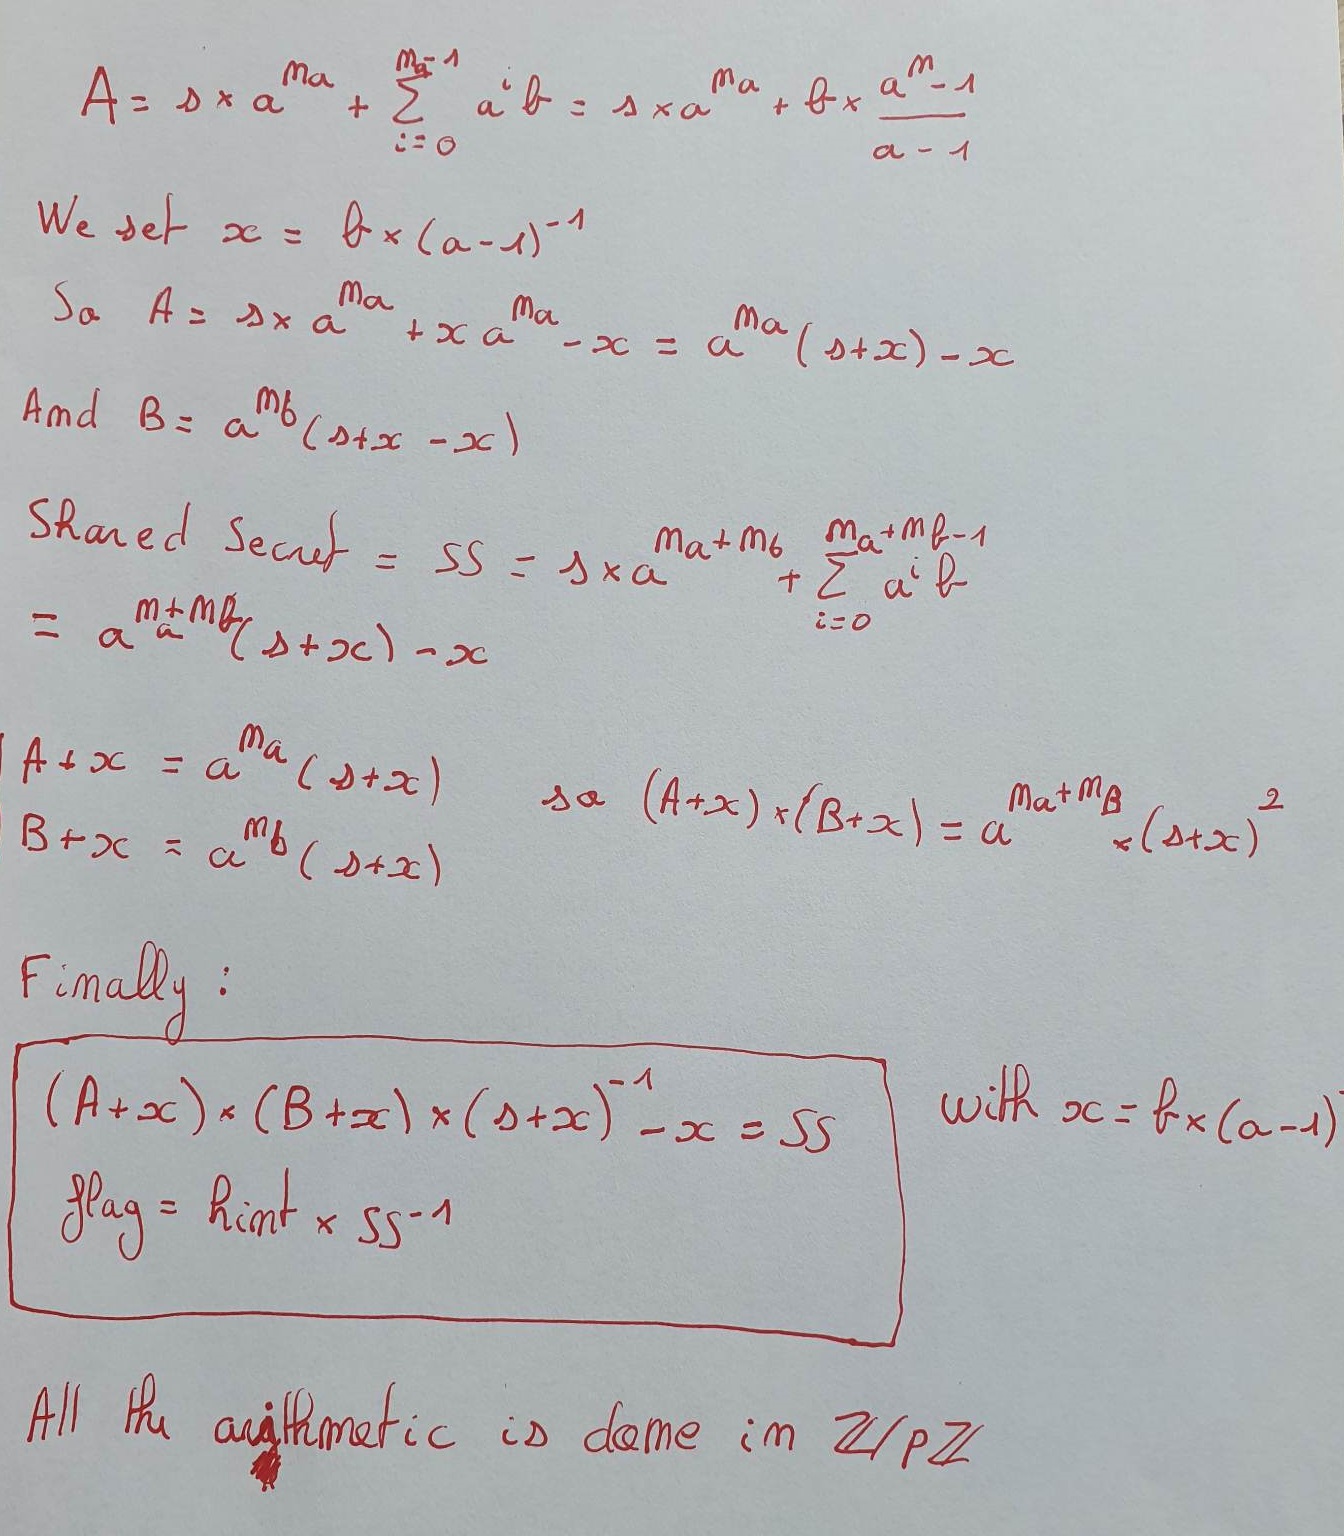 A = s × a^{n_a} + \sum_{i=0}^{n_a-1} a^i b = s × a^{n_a} + b × \frac{a^n - 1}{a - 1}
We set x = b × (a-1)^{-1}
So A = s × a^{n_a} + x a^{n_a} - x = a^{n_a} (s+x) - x
And B = a^{n_b} (s+x - x)
Shared Secret = SS = s × a^{n_a+n_b} + \sum_{i=0}^{n_a+n_b-1} a^i b
= a^{n_a+n_b} (s+x) - x
A + x = a^{n_a} (s+x)
B + x = a^{n_b} (s+x)
so (A+x) × (B+x) = a^{n_a+n_B} × (s+x)^2
Finally :
(A+x) × (B+x) × (s+x)^{-1} - x = SS
with x = b × (a-1)
flag = hint × SS^{-1}
All the arithmetic is done in ℤ/pℤ